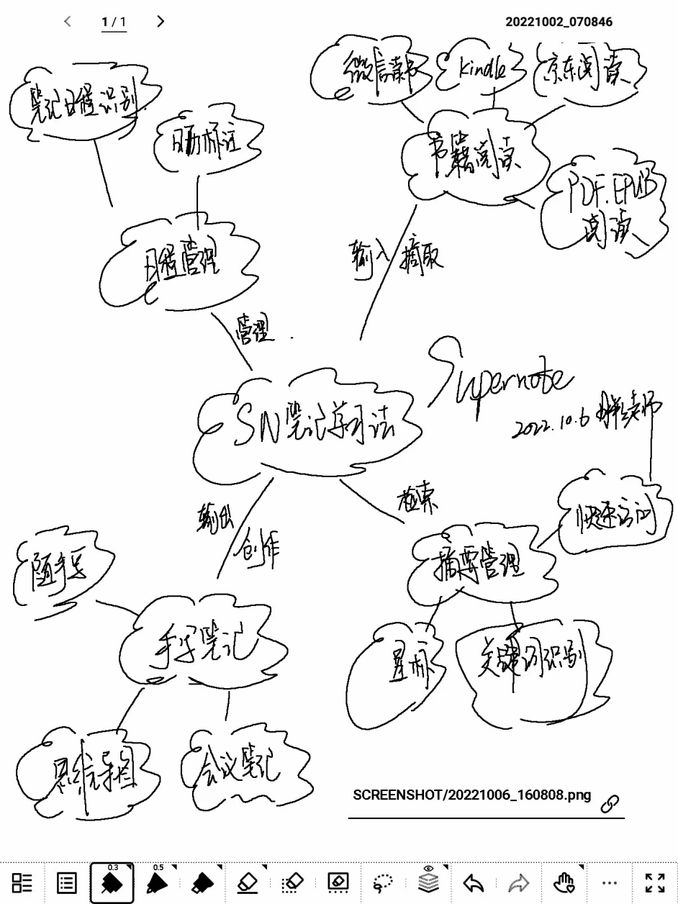 1 / 1
20221002_070846
笔记日程识别
日历标注
微信读书
Kindle
京东阅读
书籍阅读
PDF.EPUB
阅读
日程管理
输入 摘取
管理
SN笔记学习法
Supernote
2022.10.6
输出
创作
检索
快速访问
随手写
摘要管理
手写笔记
星标
关键词识别
思维导图
会议笔记
SCREENSHOT/20221006_160808.png
0.3
0.5